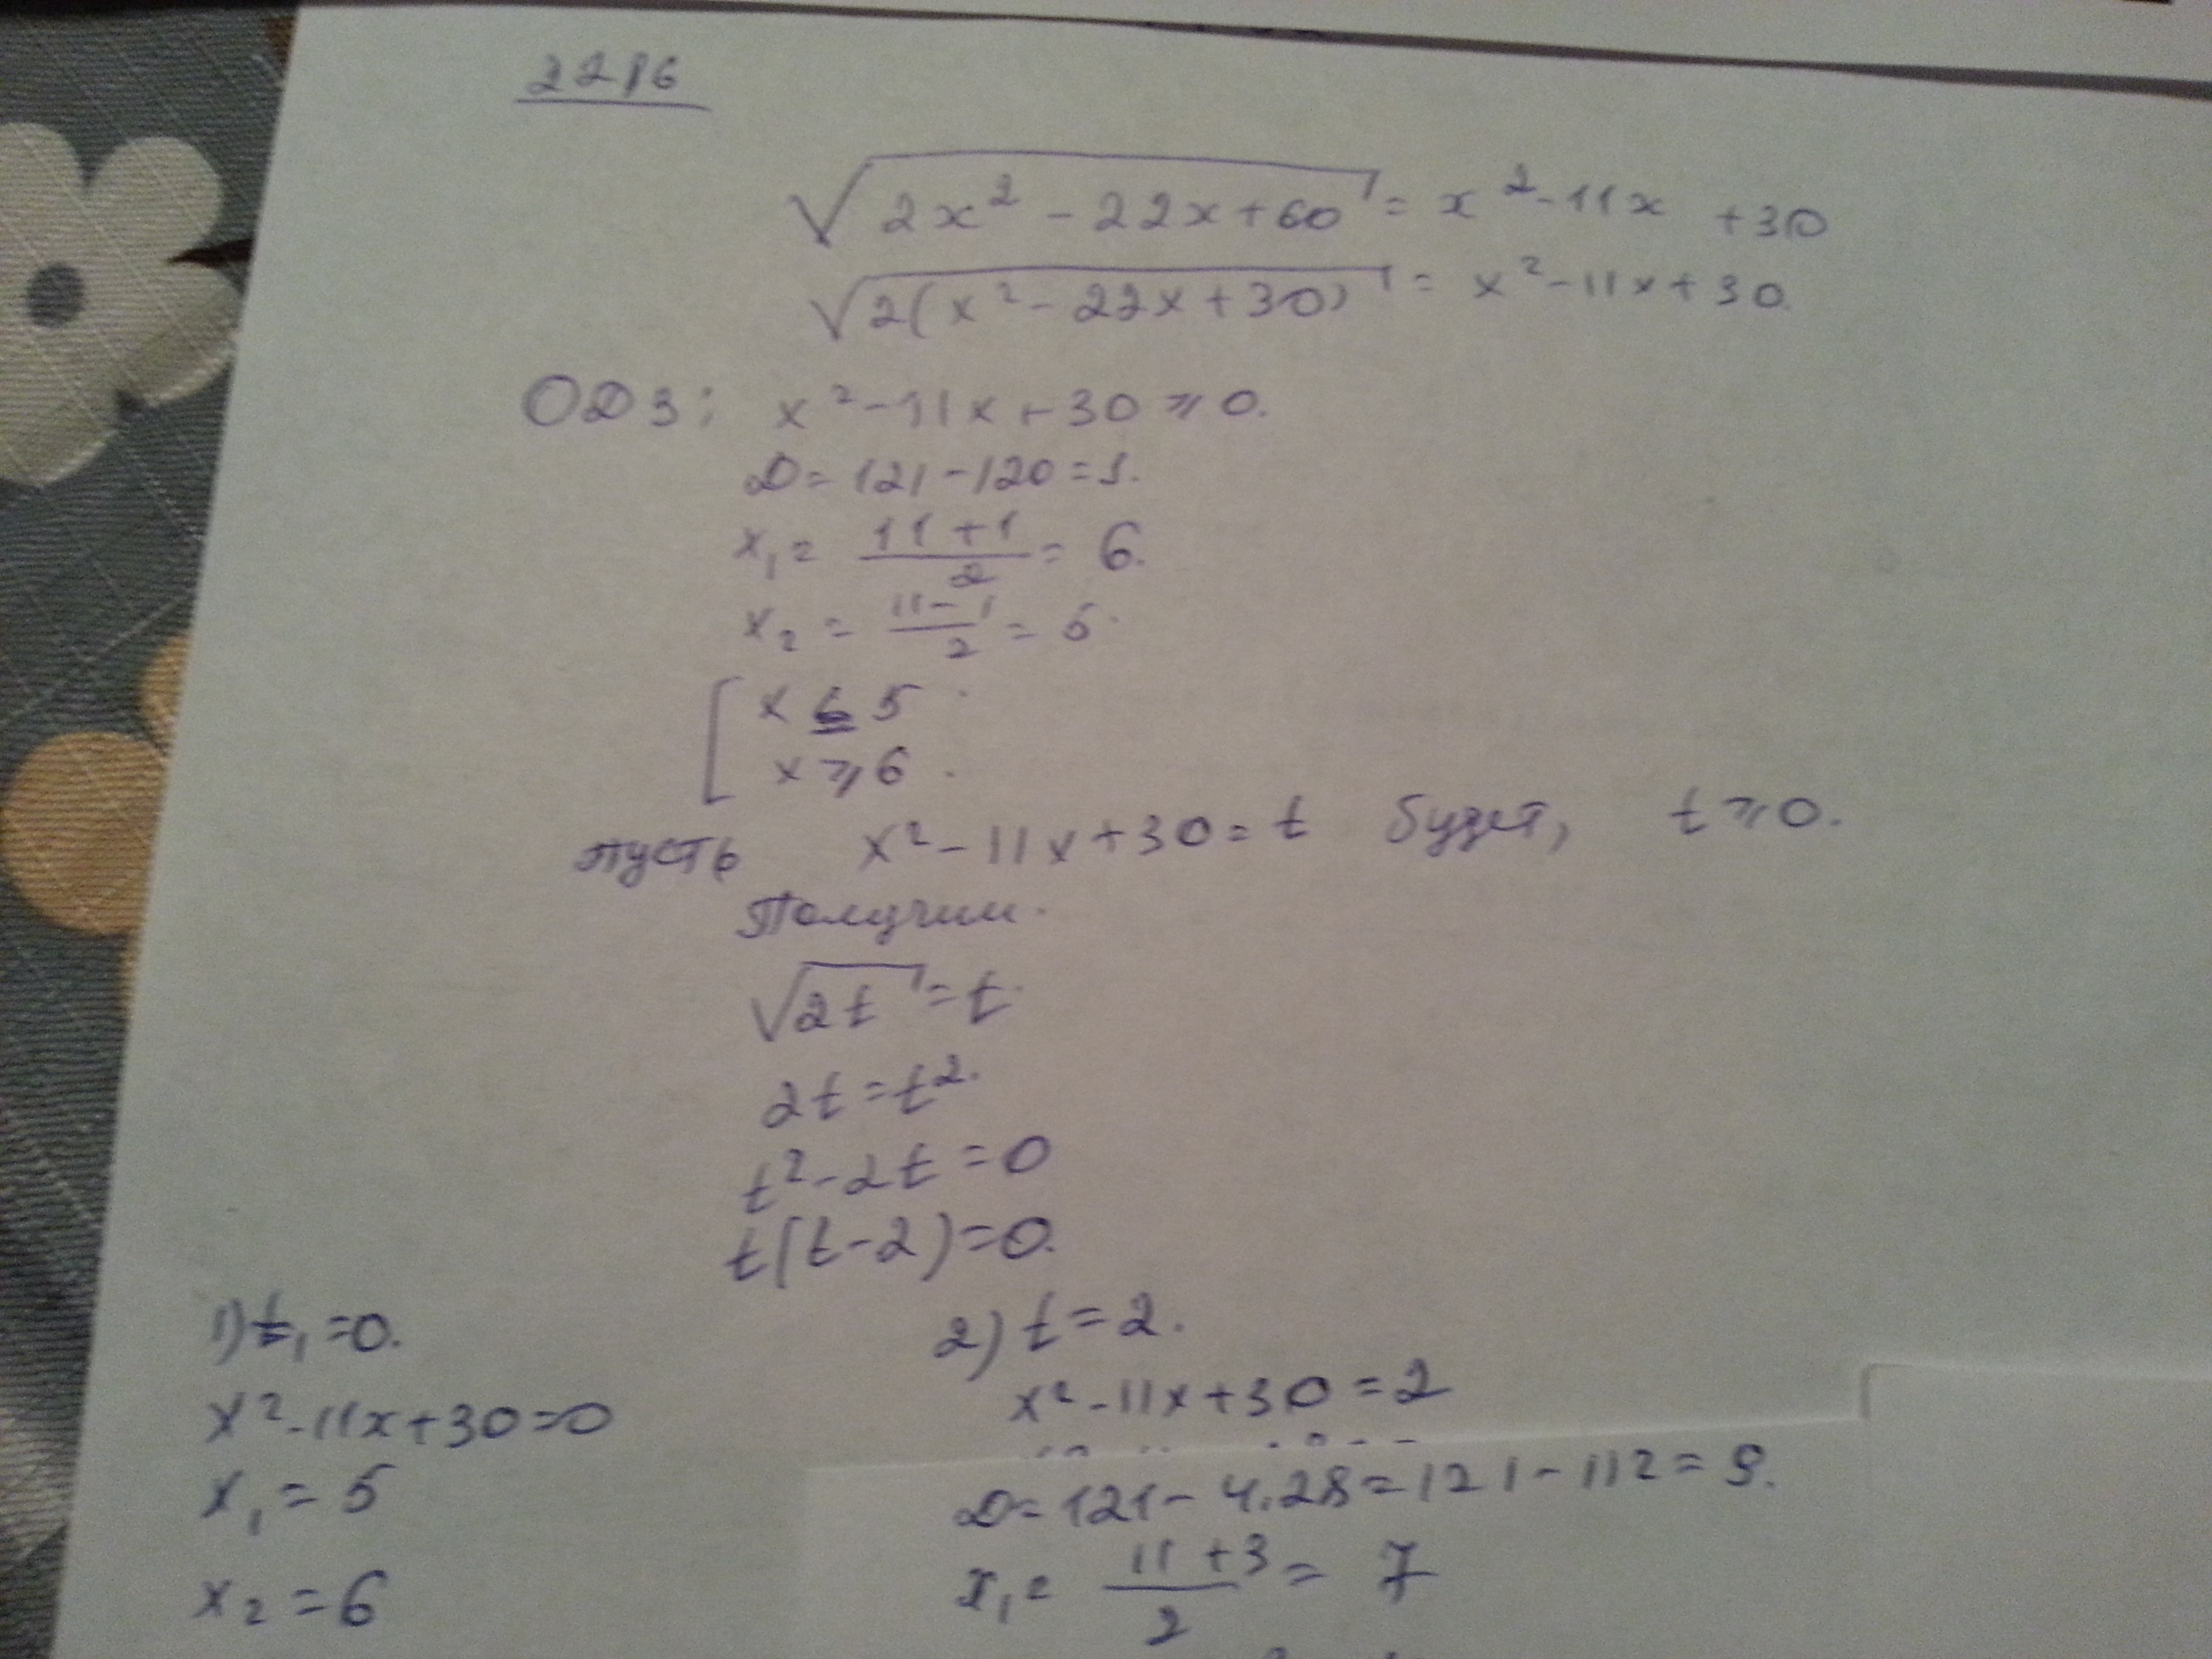 2286
√(2x² - 22x + 60) = x² - 11x + 30
√(2(x² - 22x + 30)) = x² - 11x + 30.
ОДЗ: x² - 11x + 30 ⩾ 0.
D = 121 - 120 = 1.
x₁ = (11 + 1)/2 = 6.
x₂ = (11 - 1)/2 = 5.
[ x ≤ 5
x ⩾ 6.
пусть x² - 11x + 30 = t будет, t ⩾ 0.
Получим.
√(2t) = t.
2t = t².
t² - 2t = 0
t(t - 2) = 0.
1) t₁ = 0.
x² - 11x + 30 = 0
x₁ = 5
x₂ = 6
2) t = 2.
x² - 11x + 30 = 2
D = 121 - 4.28 = 121 - 112 = 9.
x₁ = (11 + 3)/2 = 7